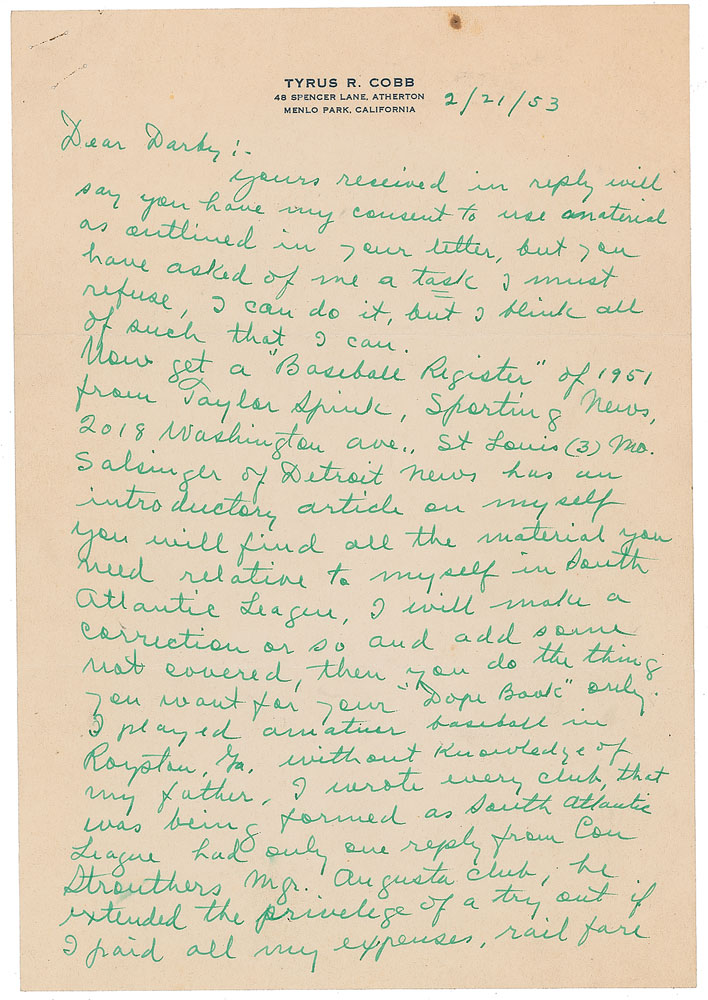 TYRUS R. COBB
48 SPENCER LANE, ATHERTON
MENLO PARK, CALIFORNIA
2/21/53
Dear Darby:-
yours received in reply will
say you have my consent to use material
as outlined in your letter, but you
have asked of me a task I must
refuse, I can do it, but I blink all
of such that I can.
Now get a "Baseball Register" of 1951
from Taylor Spink, Sporting News,
2018 Washington ave., St Louis (3) Mo.
Salsinger of Detroit News has an
introductory article on myself
you will find all the material you
need relative to myself in South
Atlantic League, I will make a
correction or so and add some
not covered, then you do the thing
you want for your "Dope Book" only.
I played amatuer baseball in
Royston, Ga. without knowledge of
my father, I wrote every club, that
was being formed as South Atlantic
League had only one reply from Con
Strouthers Mgr. Augusta Club, he
extended the privelege of a try out if
I paid all my expenses, rail fare